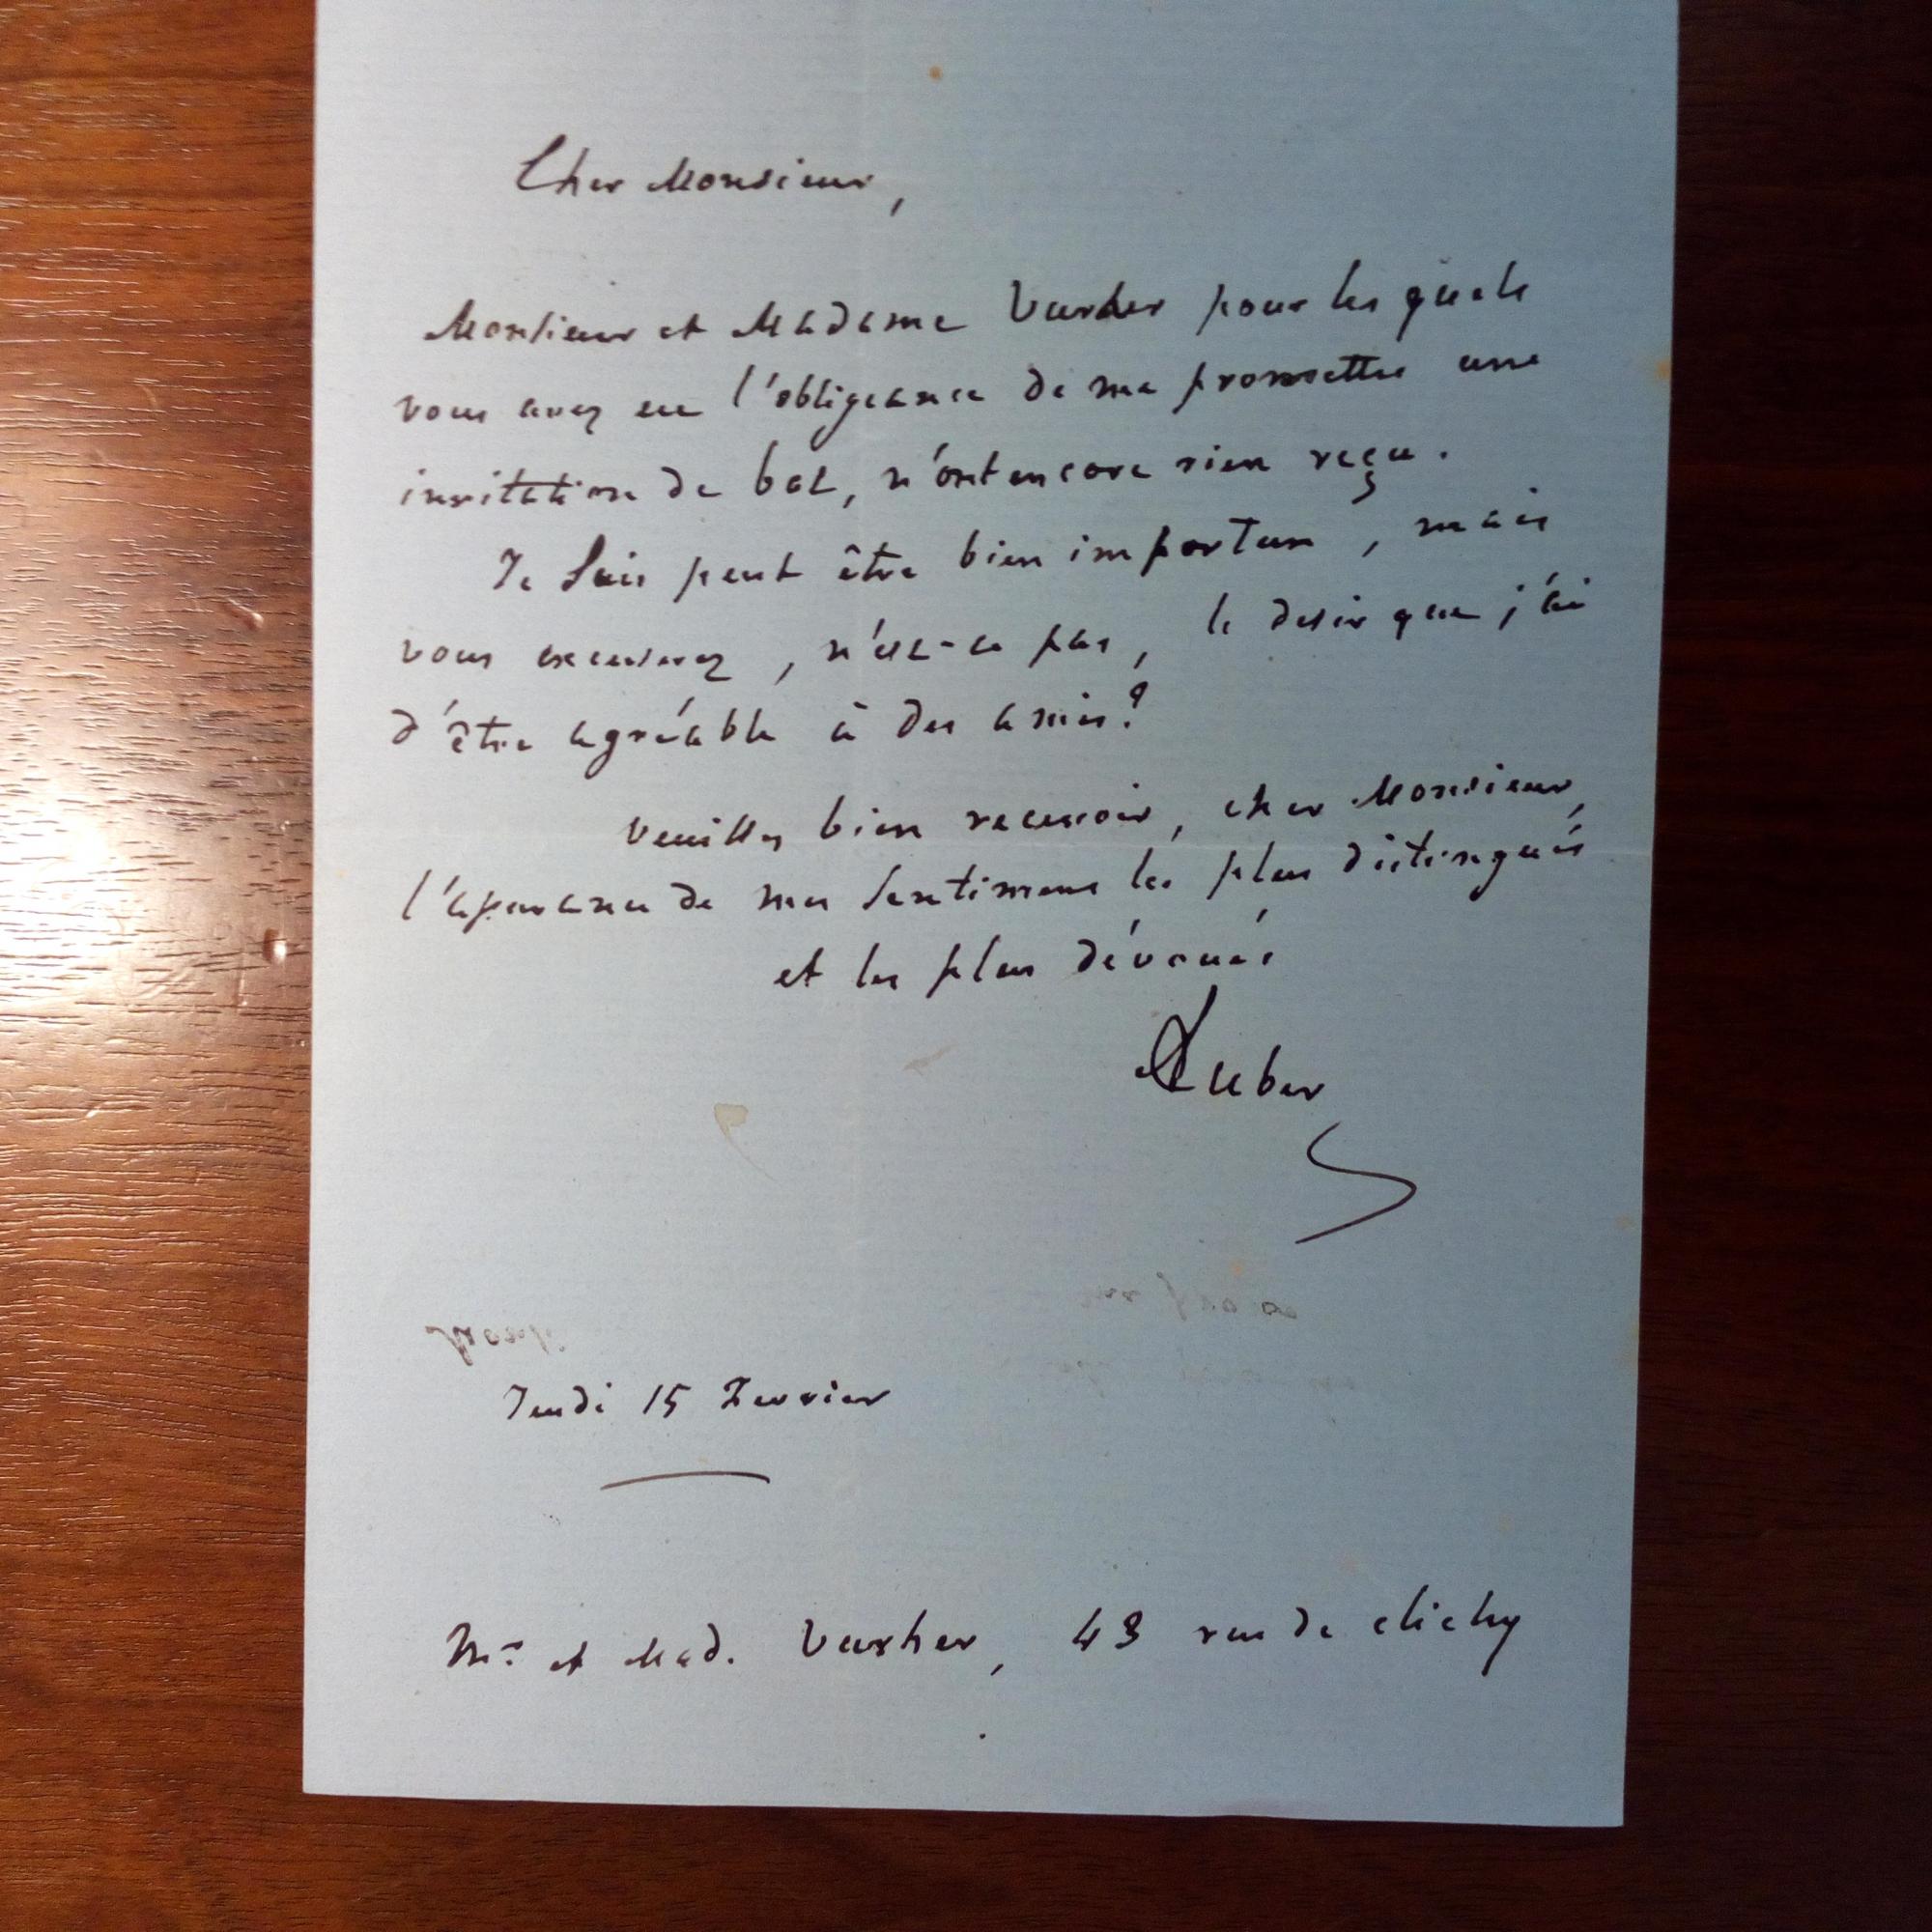 Cher Monsieur,
Monsieur et Madame pour les quels
vous avez eu l'obligeance de me promettre une
invitation de bal, n'ont encore rien reçu.
Je suis peut être bien importun, mais
vous excuserez, n'est-ce pas, le desir que j'ai
d'être agréable à des amis?
Veuillez bien recevoir, cher Monsieur,
l'assurance de mes sentimens les plus distingués
et les plus dévoués
Auber
Jeudi 15 Fevrier
Mr et Mad. , 43 rue de clichy